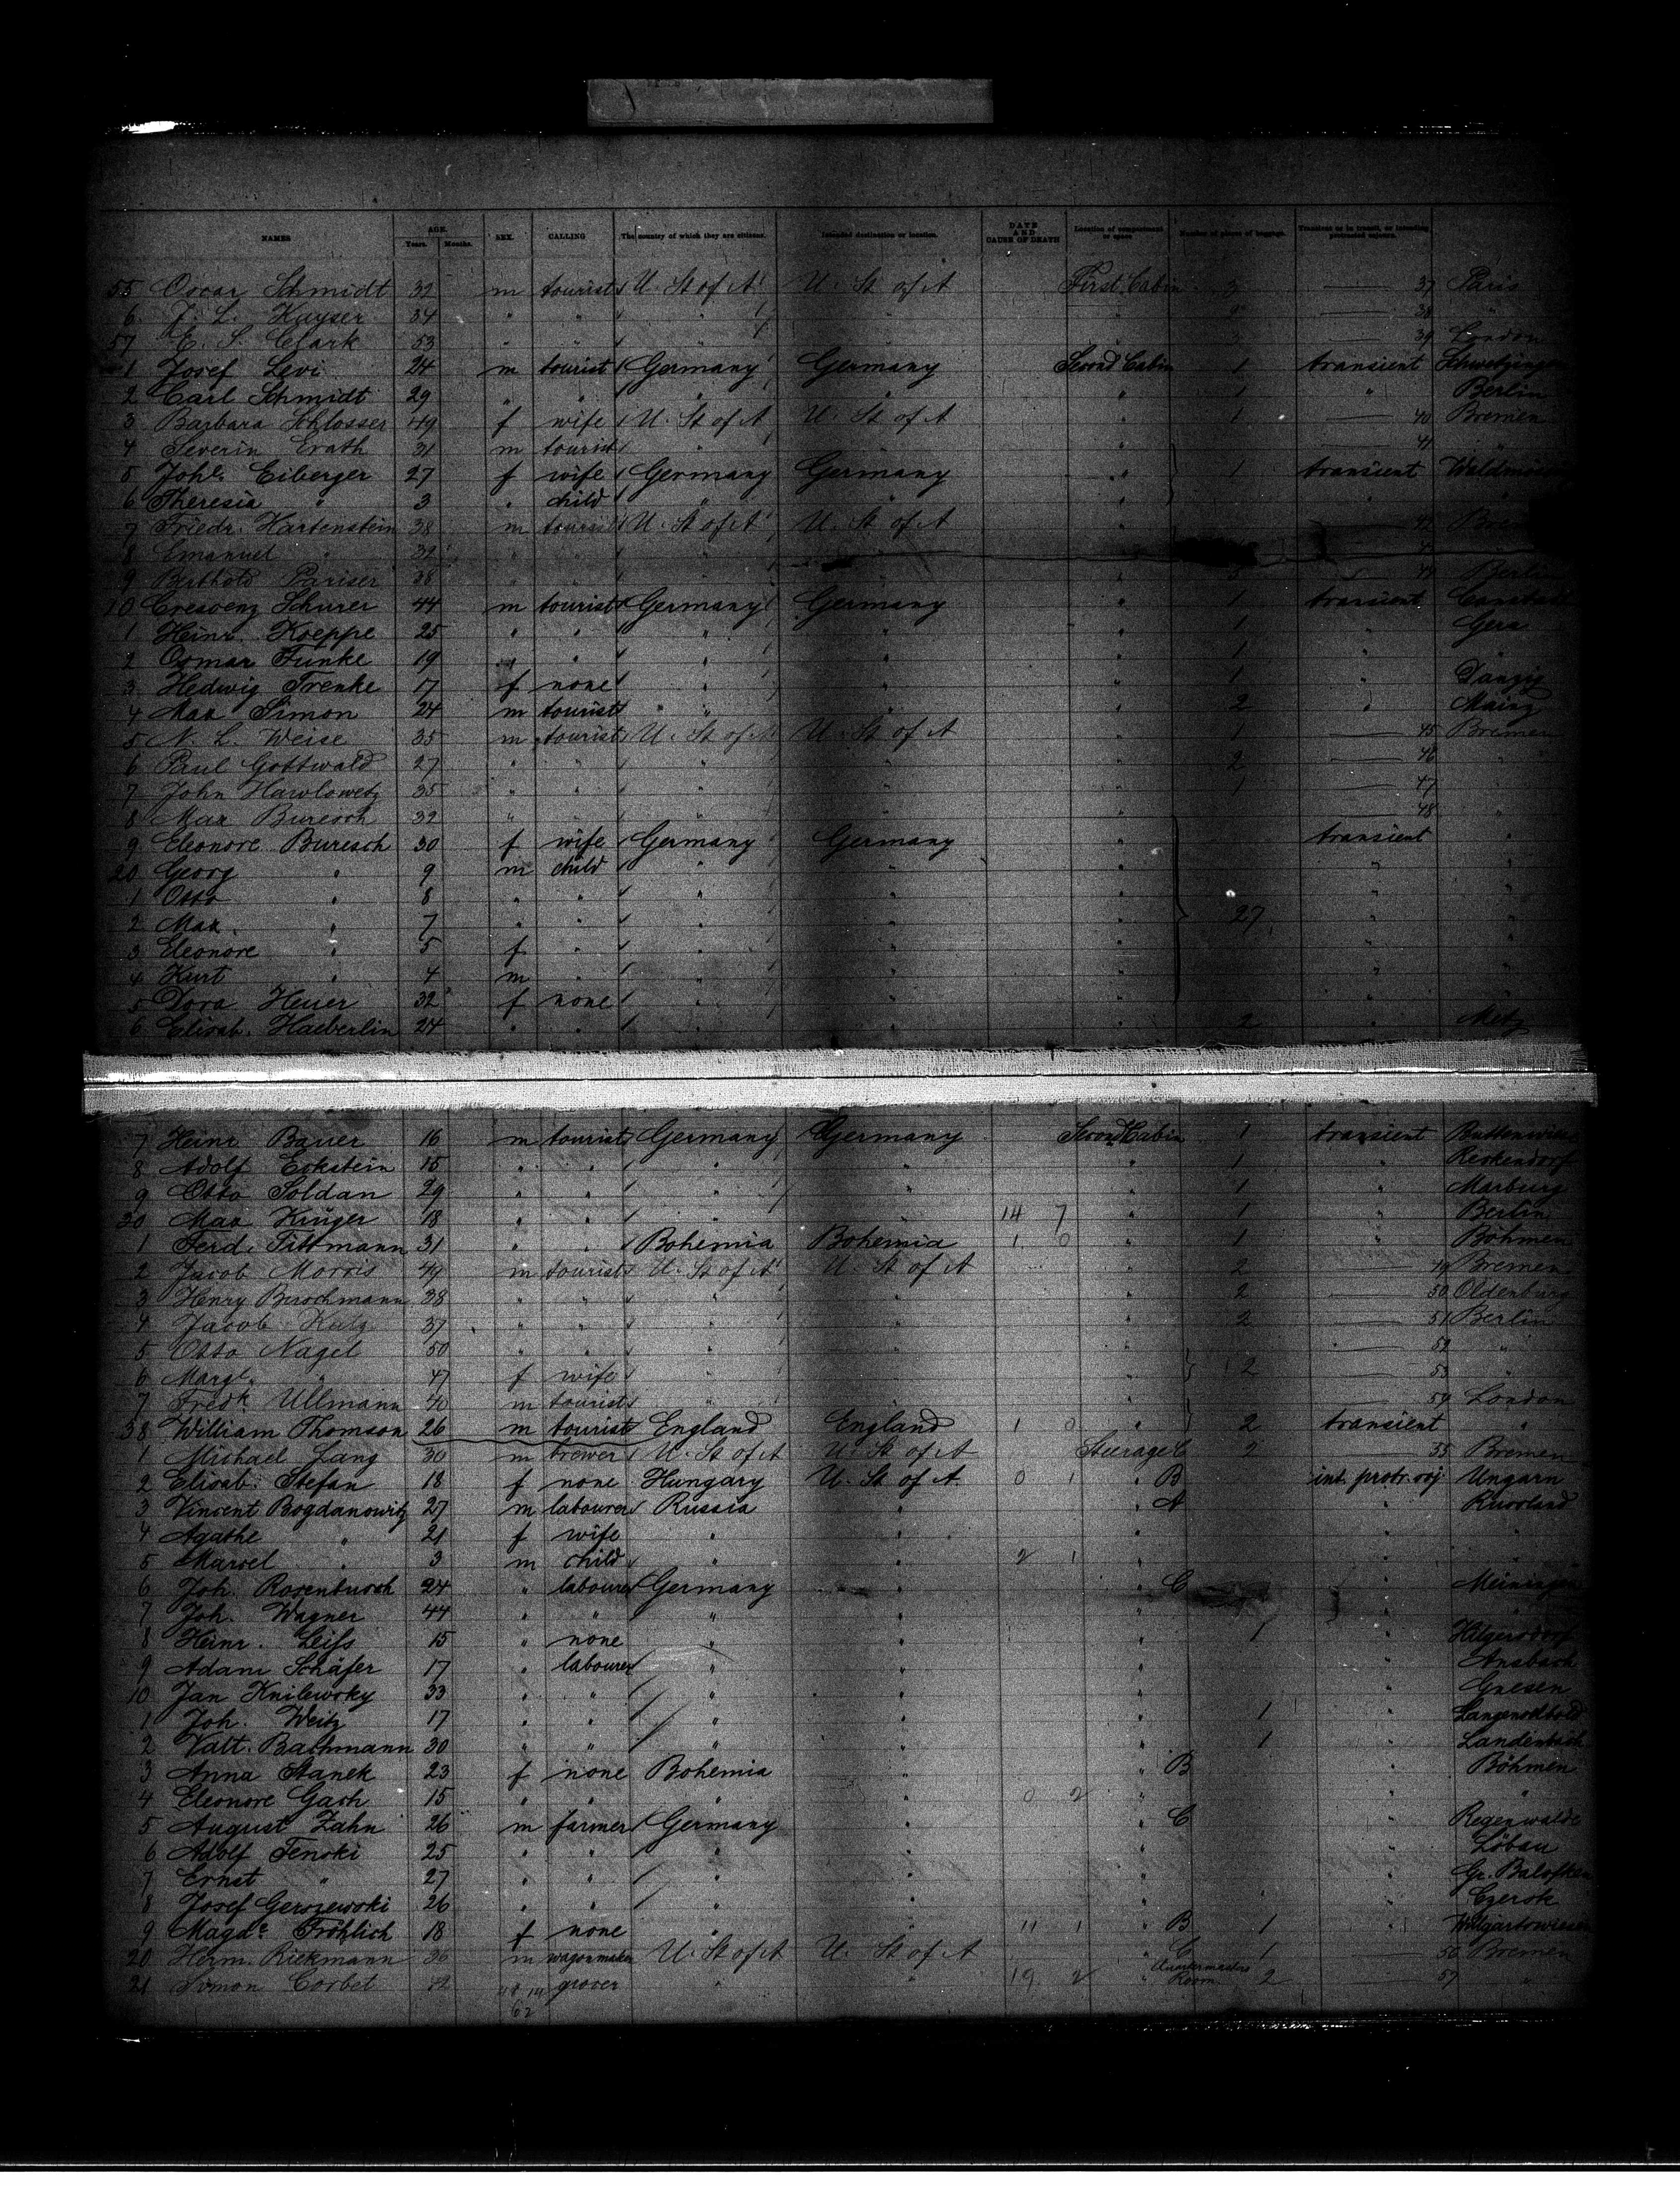 NAMES AGE. Years. Months. SEX. CALLING The country of which they are citizens. Intended destination or location. DATE AND CAUSE OF DEATH Location of compartment or space Number of pieces of baggage. Transient or in transit, or intending protracted sojourn.
55 Oscar Schmidt 32 m tourist U. St of A U. St of A First Cabin 3 — 37 Paris
6 J. L. Kayser 34 " " " " — 38 "
57 E. S. Clark 53 " " " 3 — 39 London
1 Josef Levi 24 m tourist Germany Germany Second Cabin 1 transient
2 Carl Schmidt 29 " " " " " 1 " Berlin
3 Barbara Schlosser 49 f wife U. St of A U. St of A " 1 — 40 Bremen
4 Severin Erath 31 m tourist " " " — 41 "
5 Johe. Eiberger 27 f wife Germany Germany " 1 transient
6 Theresia " 3 " child " " " "
7 Friedr. Hartenstein 38 m tourist U. St of A U. St of A " — 42
8 Emanuel " 32 " " "
9 Berthold Pariser 28 " " " " 3 — Berlin
10 Crescenz Schurer 44 m tourist Germany Germany " 1 transient
1 Heinr. Koeppe 25 " " " " " 1 " Gera
2 Osmar Funke 19 " " " " " 1 " "
3 Hedwig Frenke 17 f none " " " 1 " Danzig
4 Max Simon 24 m tourist " " " 2 " Mainz
5 N. L. Weise 35 m tourist U. St of A U. St of A " 1 — 45 Bremen
6 Paul Gottwald 27 " " " " " 2 — 46 "
7 John Hawlowetz 35 " " " " " 1 — 47 "
8 Max Buresch 32 " " " " " — 48 "
9 Eleonore Buresch 30 f wife Germany Germany " transient "
20 Georg " 9 m child " " " " "
1 Otto " 8 " " " " " " "
2 Max " 7 " " " " " 27 " "
3 Eleonore " 5 f " " " " " "
4 Kurt " 4 m " " " " " "
5 Dora Heuer 32 f none " " " " "
6 Elisab. Haeberlin 24 " " " " " 2 " Metz
7 Heinr Bauer 16 m tourist Germany Germany Second Cabin 1 transient
8 Adolf Eckstein 15 " " " " " 1 " Reckendorf
9 Otto Soldan 29 " " " " " 1 " Marburg
30 Max Krüger 18 " " " " 14 7 " 1 " Berlin
1 Ferd. Tittmann 31 " " Bohemia Bohemia 1 0 " 1 " Böhmen
2 Jacob Morris 49 m tourist U. St of A U. St of A " 2 — 49 Bremen
3 Henry Berschmann 38 " " " " " 2 — 50 Oldenburg
4 Jacob Katz 37 " " " " " 2 — 51 Berlin
5 Otto Nagel 50 " " " " " — 52 "
6 Margt. " 47 f wife " " " 2 — 53
7 Fredk Ullmann 40 m tourist " " " — 54 London
38 William Thomson 26 m tourist England England 1 0 " 2 transient "
1 Michael Lang 30 m brewer U. St of A U. St of A Steerage C 2 55 Bremen
2 Elisab. Stefan 18 f none Hungary U. St of A. 0 1 " B int. protr. soj Ungarn
3 Vincent Bogdanowitz 27 m labourer Russia " " A " Russland
4 Agathe " 21 f wife " " " " "
5 Marcel " 3 m child " " 2 1 " " "
6 Joh. Rosenbusch 24 " labourer Germany " " C " Meiningen
7 Joh. Wagner 44 " " " " " "
8 Heinr. Leifs 15 " none " " " 1 " Hilgersdorf
9 Adam Schäfer 17 " labourer " " " " Ansbach
10 Jan Knilewsky 33 " " " " " " Gnesen
1 Joh. Weitz 17 " " " " " 1 " Langenselbold
2 Valt. Bachmann 30 " " " " " 1 " Landenbach
3 Anna Stanek 23 f none Bohemia " " B " Böhmen
4 Eleonore Gach 15 " " " " 0 2 " " "
5 August Zahn 26 m farmer Germany " " C " Regenwalde
6 Adolf Tenski 25 " " " " " " Löbau
7 Ernst " 27 " " " " " "
8 Josef Gerszewski 26 " " " " " " Czersk
9 Magde Fröhlich 18 f none " " 11 1 " B 1 "
20 Herm. Rickmann 36 m wagonmaker U. St of A U. St of A " C 1 — 56 Bremen
21 Simon Corbet 42 grocer " " 19 2 " Quartermasters Room 2 — 57 "
62